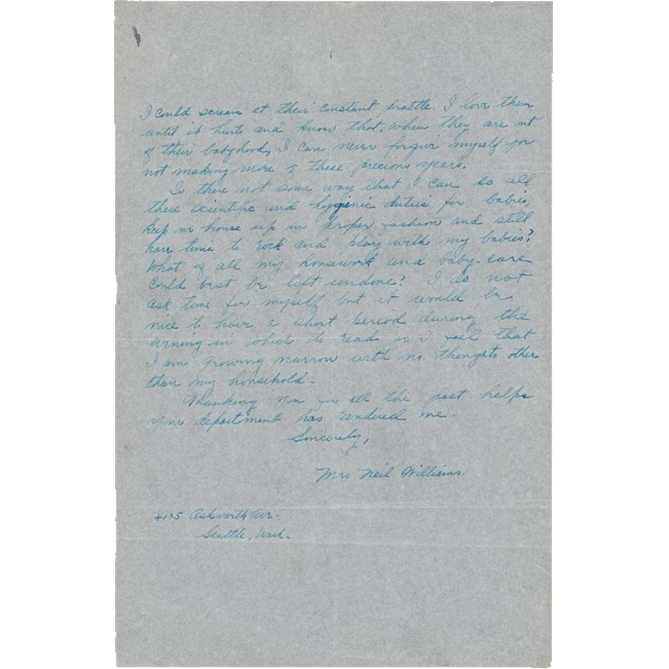 I could scream at their constant prattle. I love them
until it hurts and know that, when they are out
of their babyhood, I can never forgive myself for
not making more of these precious years.
Is there not some way that I can do all
these scientific and hygienic duties for babies,
keep our house up in proper fashion and still
have time to rock and play with my babies?
What of all my housework and baby-care
could best be left undone? I do not
ask time for myself but it would be
nice to have a short period during the
evening in which to read as I feel that
I am growing narrow with no thoughts other
than my household.
Thanking you for all the past helps
your department has rendered me.
Sincerely,
Mrs Neil Williams.
Ashworth Ave.
Seattle, Wash.